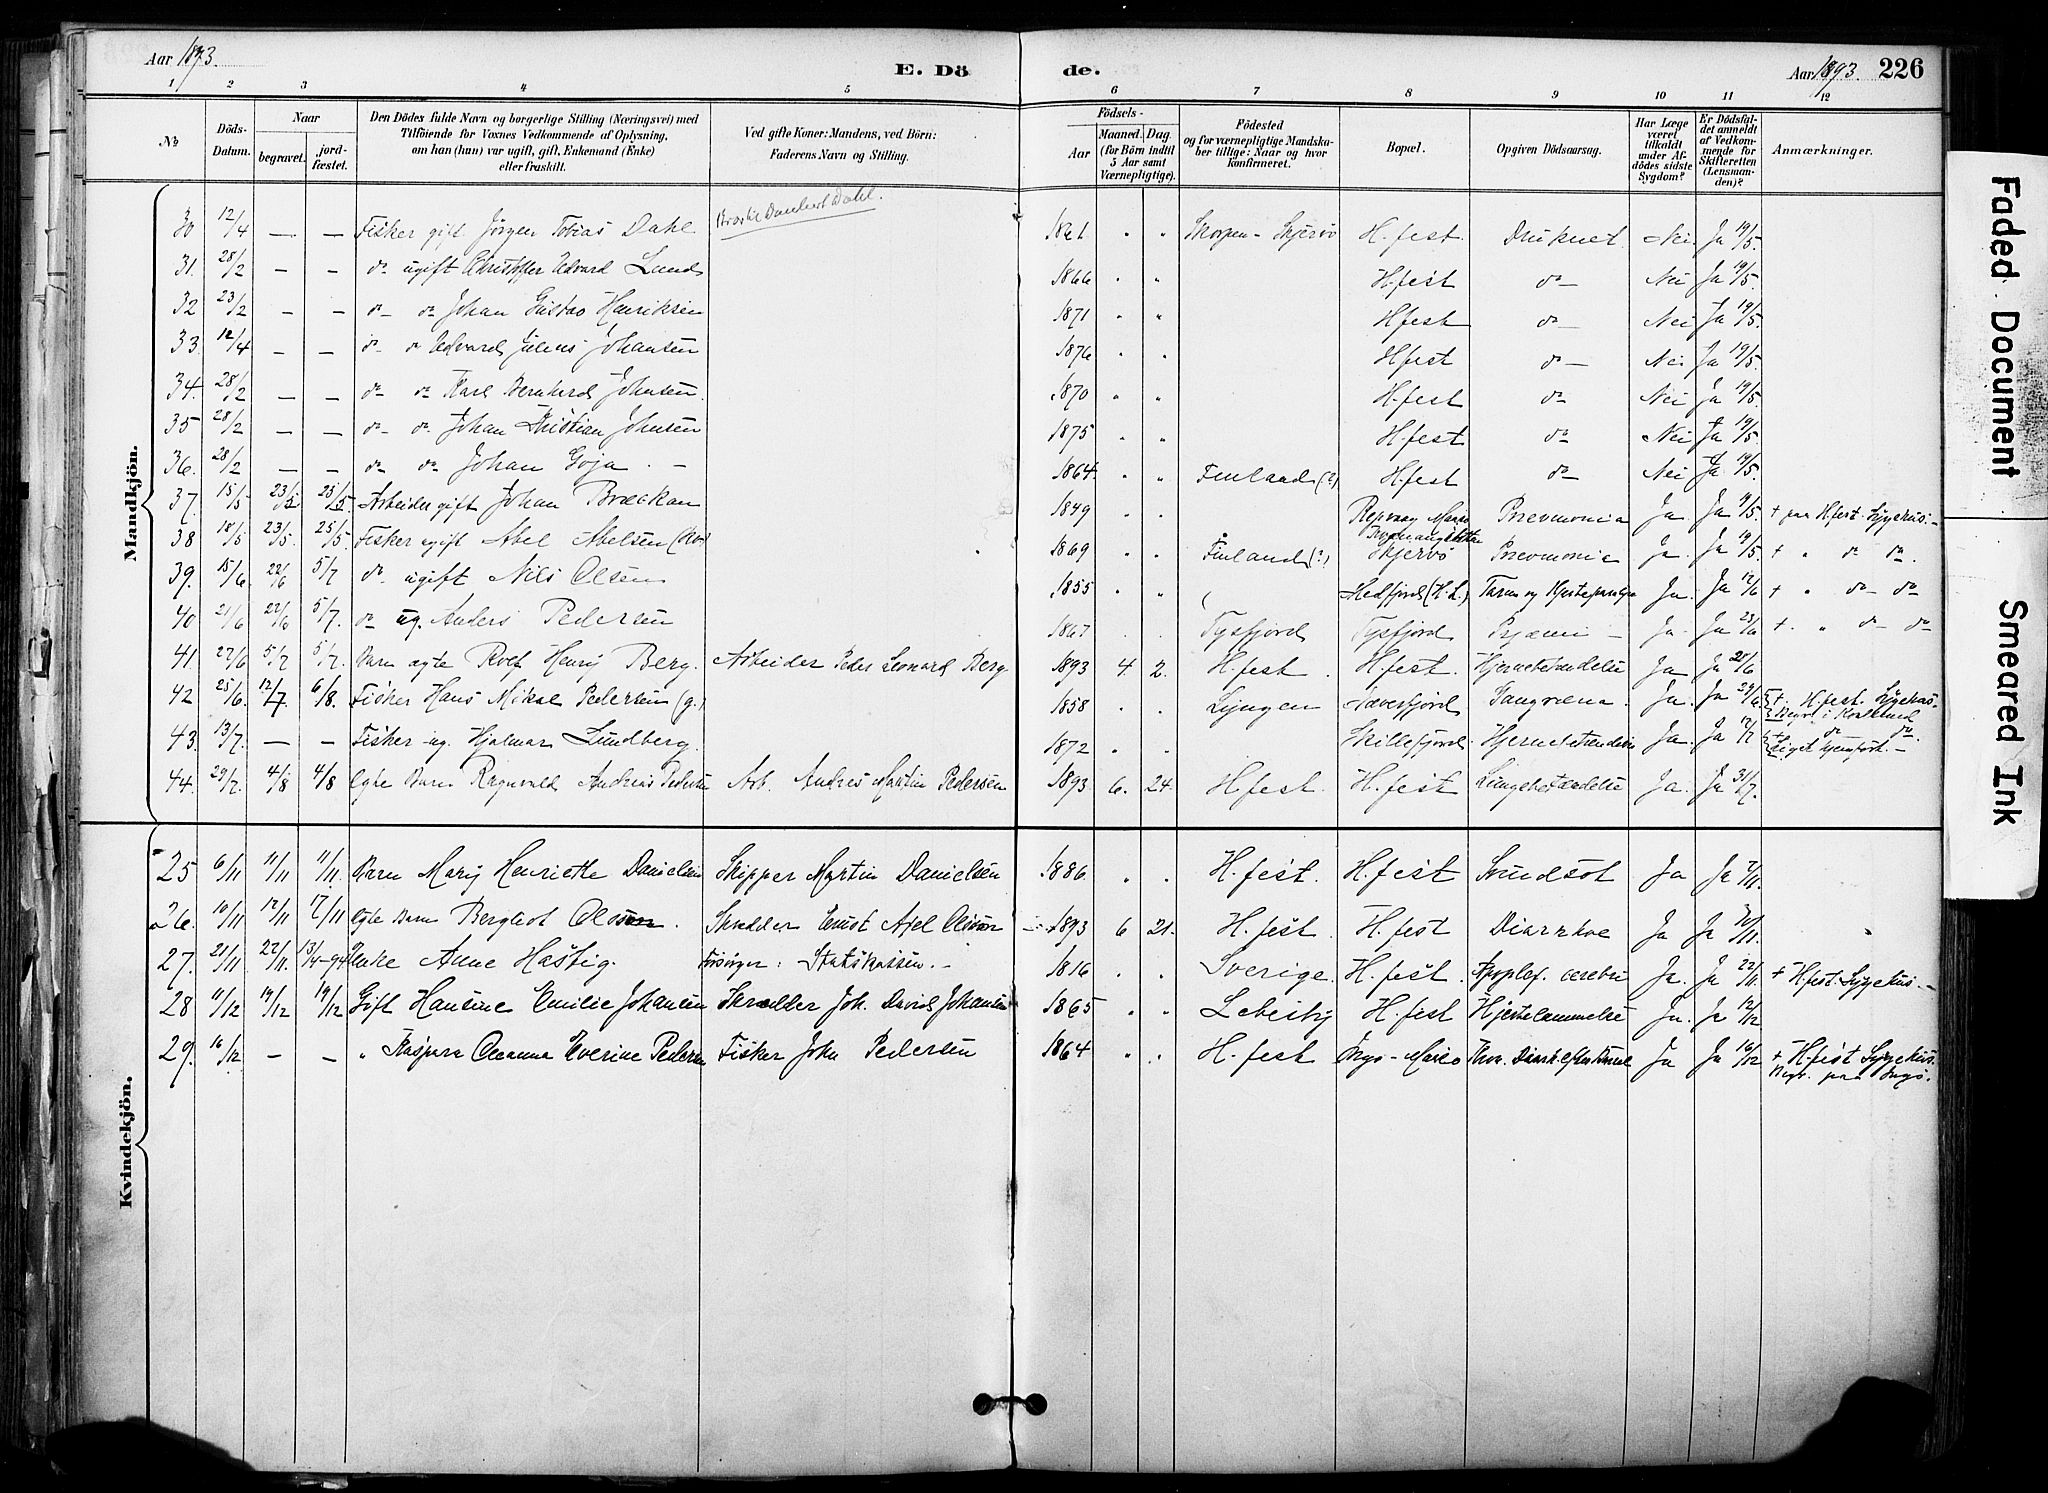 Aar 1893.
E. Dö
de.
Aar 1893. 226
1 2 3 4 5 6 7 8 9 10 11 12
No
Döds-Datum.
Naar
begravet.
jord-fæstet.
Den Dödes fulde Navn og borgerlige Stilling (Næringsvei) med
Tilföiende for Voxnes Vedkommende af Oplysning,
om han (hun) var ugift, gift, Enkemand (Enke)
eller fraskilt.
Ved gifte Koner: Mandens, ved Börn:
Faderens Navn og Stilling.
Födsels-
Aar
Maaned. Dag.
(for Börn indtil
5 Aar samt
Værnepligtige).
Födested
og for værnepligtige Mandska-
ber tillige: Naar og hvor
konfirmeret.
Bopæl.
Opgiven Dödsaarsag.
Har Læge
været
tilkaldt
under Af-
dödes sidste
Sygdom?
Er Dödsfal-
det anmeldt
af Vedkom-
mende for
Skifteretten
(Lensman-
den)?
Anmærkninger.
Mandkjön.
30 12/4 — — Fisker gift Jörgen Tobias Dahl Danhert Dahl. " " Skorpen - Skjervö H.fest. Druknet. Nei Ja 19/5.
31. 28/2 — — do ugift Christoffer Edvard Lund 1866 " " H.fest do Nei Ja 19/5.
32 23/2 — — do do Johan Gustav Henriksen 1871 " " H.fest do Nei Ja 19/5.
33. 12/4 — — do do Edvard Julius Johansen 1876 " " H.fest do Nei Ja 19/5.
34. 28/2 — — do do Karl Bernhard Johnsen. 1870 " " H.fest do Nei Ja 19/5.
35 28/2 — — do do Johan Kristian Johnsen 1875 " " H.fest do Nei Ja 19/5.
36. 28/2 — — do do Johan Goja. 1864. " " Finland (?) H.fest do Nei Ja 19/5.
37. 15/5 23/5 25/5. Arbeider gift Johan Bræckan 1849 Repvaag Pneumonia Ja Ja 19/5. + paa H.fest. Sygehus.
38 18/5 23/5. 25/5. Fisker ugift Abel Abelsen 1869 " " Finland (?) Skjervö Pneumonia Ja. Ja 19/5 + " do do.
39. 15/6. 22/6 5/7 do ugift Nils Olsen 1855 " " Mefjord (H.L.) Tarm og Ja. Ja 17/6 + " do do
40 21/6 22/6 5/7. do ug. Anders Pedersen 1867 Tysfjord Tysfjord Pyæmi Ja. Ja 23/6 + " do do
41. 27/6 5/7 5/7. Barn ægte Rolf Henrij Berg. Arbeider Peder Leonard Berg 1893 4. 2. H.fest. H.fest. Hjernebetændelse Ja Ja
42 25/6. 12/7. 6/8. Fisker Hans Mikal Pedersen (g.) 1858 Lyngen Næverfjord Gangræna. Ja. Ja 27/6. + H.fest. Sygehus. Begr. i
43. 13/7. — — Fisker ug. Hjalmar Lundberg. 1872 Skillefjord. Hjernebetændelse Ja. Ja + do do. Liget hjemfört.
44. 29/7. 4/8 4/8 Egte Barn Ragnvald Andreas Pedersen Arb. Andreas Martin Pedersen 1893 6. 24. H.fest. H.fest Lungebetændelse Ja. Ja 31/7.
Kvindekjön.
25 6/11 11/11 11/11. Barn Marij Henriette Danielsen Skipper Martin Danielsen 1886 " " H.fest. H.fest Svindsot Ja Ja 7/11.
26. 10/11 17/11 17/11 Egte Barn Bergljot Olsson. Skrædder Ernst Axel Olsson 1893 6 21. H.fest. H.fest Diarrhoe Ja Ja
27. 21/11 22/11. 13/4-94 Enke Anne Hastig. Forsörger: Statskassen. 1816 Sverige. H.fest. Apoplex. cerebri Ja. Ja 22/11. + H.fest. Sygehus.
28 11/12 19/12 19/12 Gift Hansine Emilie Johansen Skrædder Joh. David Johansen 1865 " " Lebesby H.fest Hjertelammelse Ja. Ja 12/12
29. 16/12. — — " Kaspara Oleanna Everine Pedersen Fisker John Pedersen 1864 " " H.fest Ingö - Maasö Ja Ja 16/12 + H.fest Sygehus. Begr. paa Ingö.
Faded Document
Smeared Ink